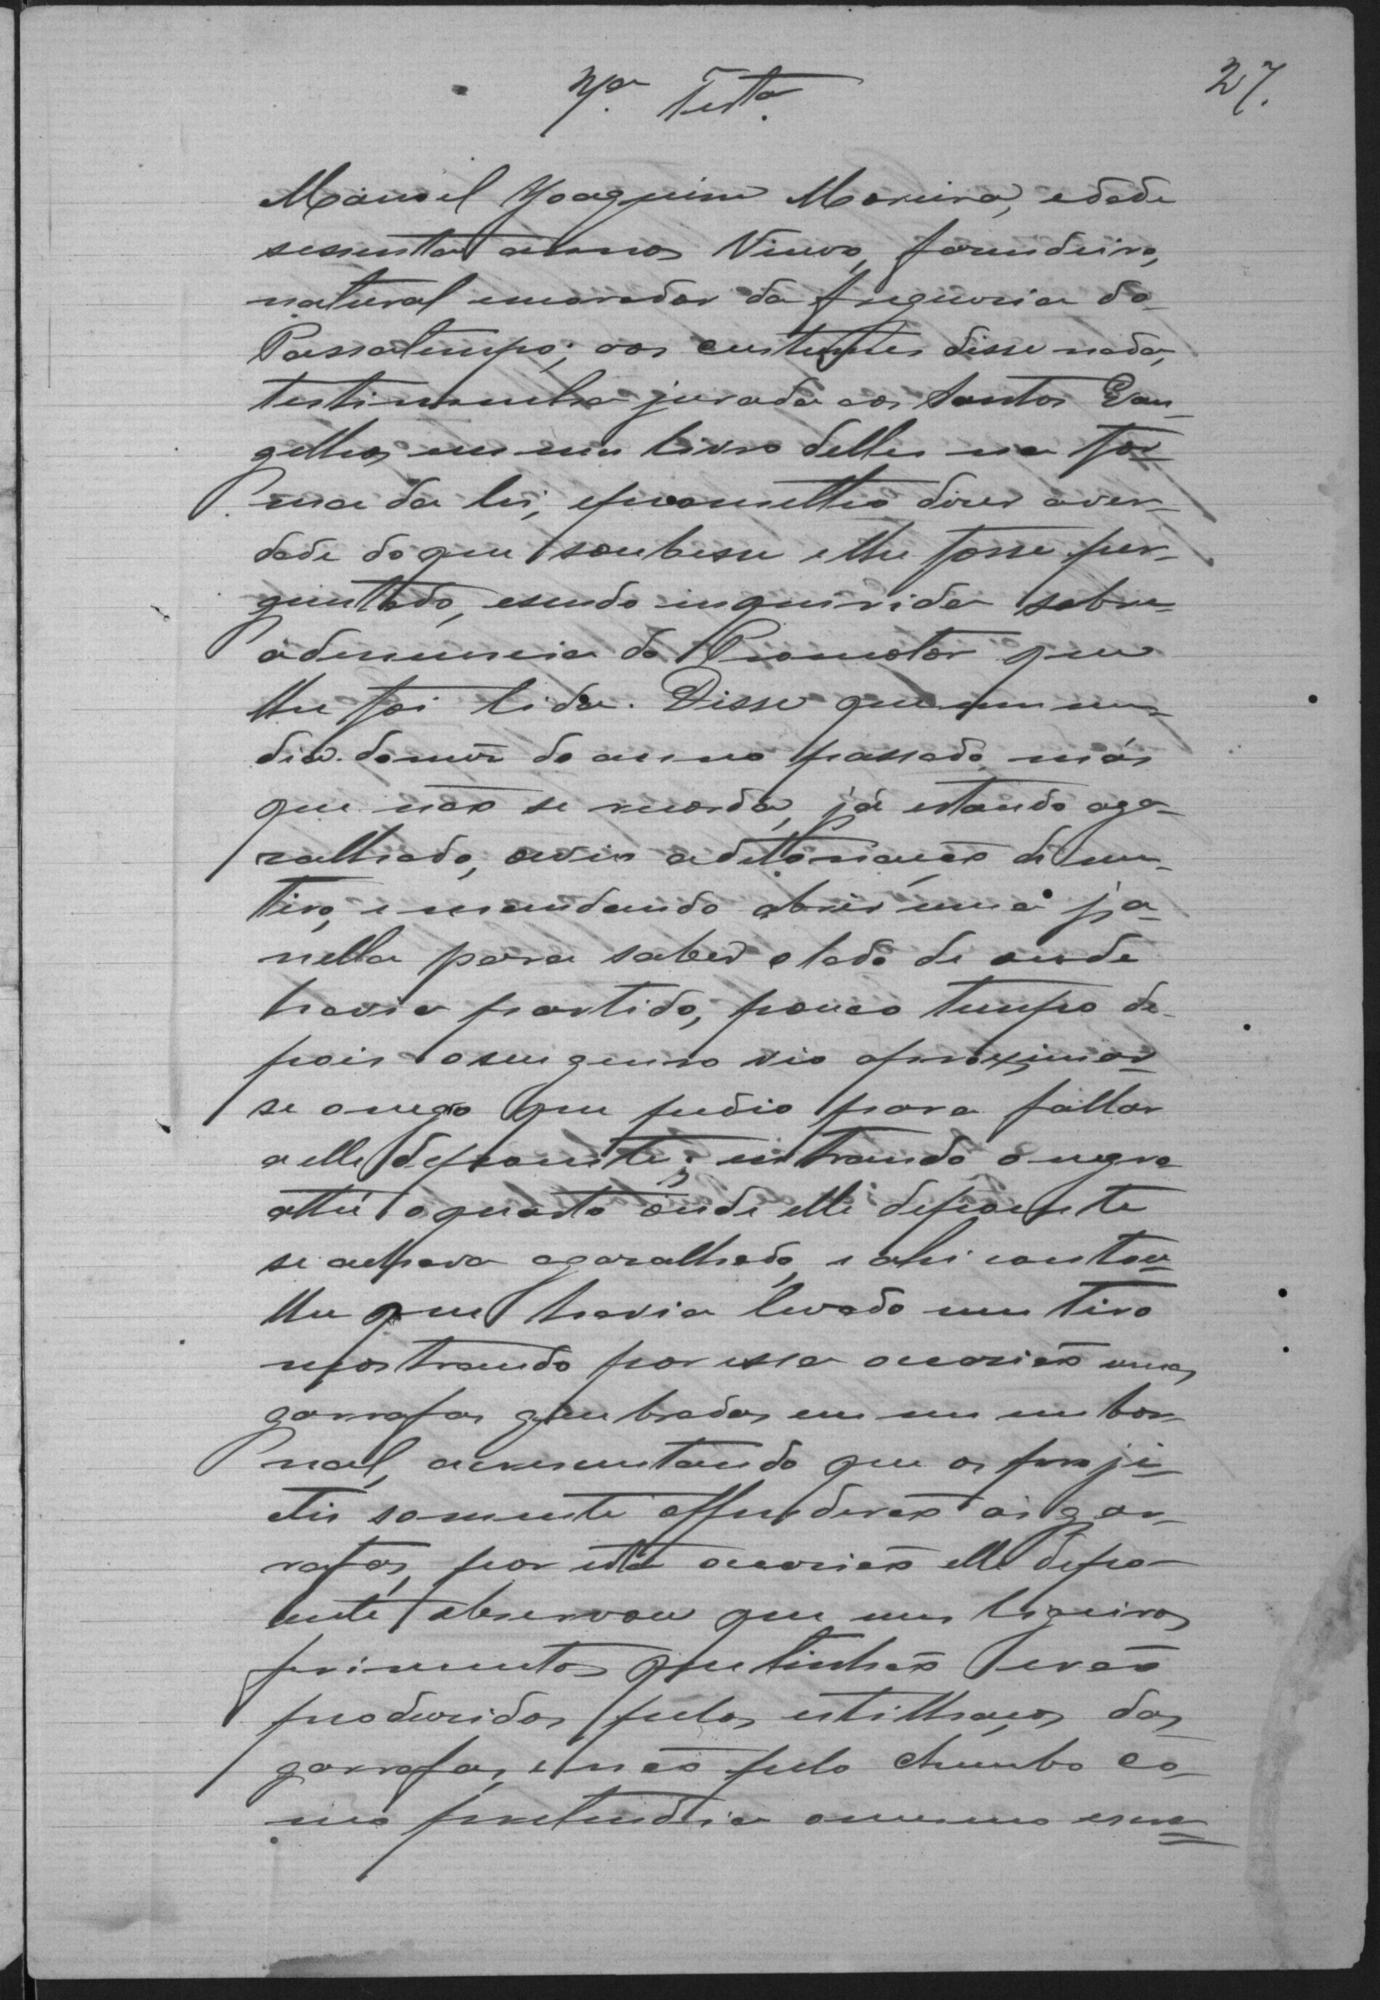 27.
7ª Testª.
Manoel Joaquim Moreira, edade
sessenta annos Viuvo, fasendeiro,
natural e morador da freguesia do
Passatempo; aos custumes disse nada,
testimunha jurada aos Santos Evan-
gelhos em um livro delles na for-
ma da lei, e prometteo diser a ver-
dade do que soubesse e lhe fosse per-
guntado, e sendo inquirida sobre
a denuncia do Promotor que
lhe foi lida. Disse que em um
dia do mez do anno passado, mas
que não se recorda, já estando aga-
salhado, ouvio a detonação de um
tiro, e mandando abrir uma ja-
nella para saber o lado de onde
havia partido, pouco tempo de-
pois o seu genro vio aproximar-
se o negro que pedio para fallar
a elle depoente; entrando o negro
athé o quarto onde elle depoente
se achava agasalhado, e ahi contou-
lhe que havia levado um tiro
mostrando por essa occasião umas
garrafas quebradas em um embor-
nal, acressentando que os proje-
ctis somente offenderão as gar-
rafas, por esta occasião elle depo-
ente observou que uns ligeiros
ferimentos que tinhão erão
produsidos pelos estilhaços das
garrafas, e não pelo chumbo co-
mo pretendia o mesmo escra=